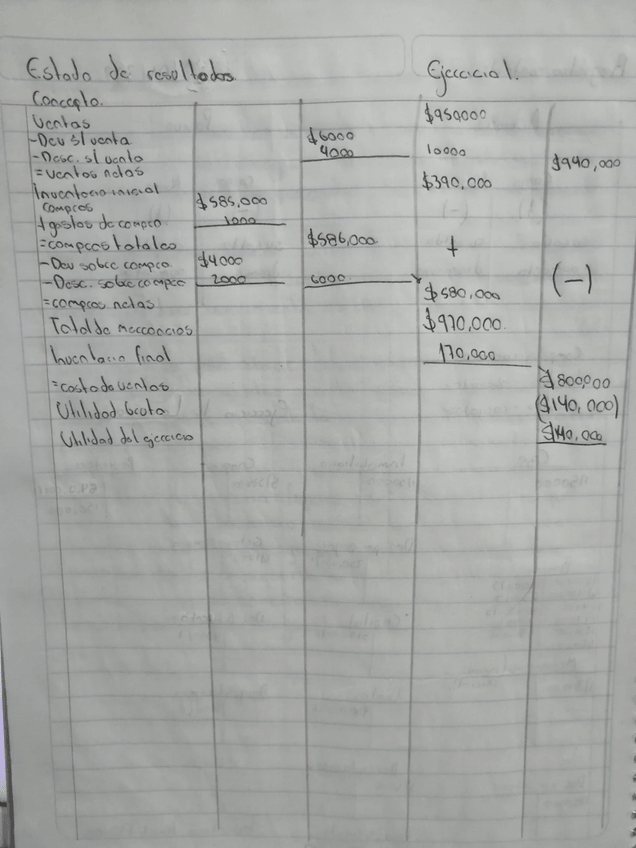 Estado de resultados Ejercicio 1.
Concepto.
Ventas $950000
-Dev s/venta $6000
-Desc. s/venta 4000 10000
=ventas netas $940,000
Inventario inicial $390,000
compras $585,000
+gastos de compra 1000
=compras totales $586,000 +
-Dev sobre compra $4000
-Desc. sobre compra 2000 6000 (-)
=compras netas $580,000
Total de mercancias $970,000.
Inventario final 170,000
=costo de ventas $800,000
Utilidad bruta ($140,000)
Utilidad del ejercicio $140,000